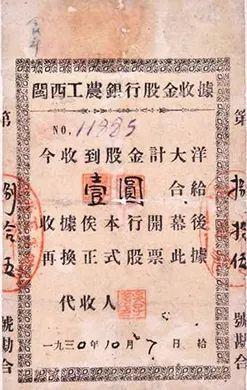 閩西工農銀行股金收據
NO. 11885
今收到股金計大洋
壹圓 合給
收據俟本行開幕後
再換正式股票此據
代收人
一九三0年10月7日給
第 捌拾伍 號勘合
第 捌拾五 號勘合